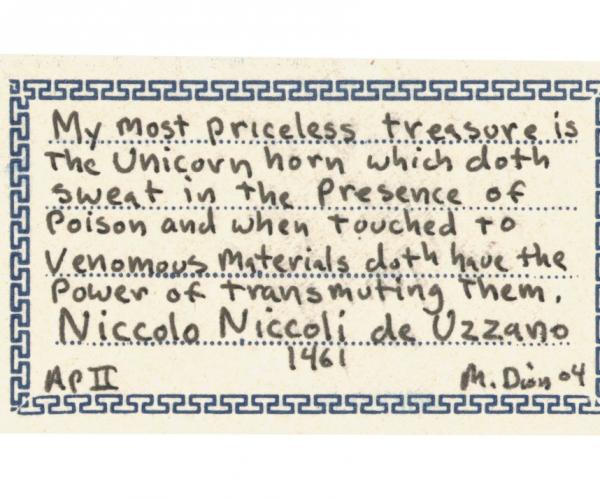 My most priceless treasure is
The Unicorn horn which doth
sweat in the Presence of
Poison and when touched to
Venomous Materials doth have the
Power of transmuting Them.
Niccolo Niccoli de Uzzano
1461
AP II M. Dion 04